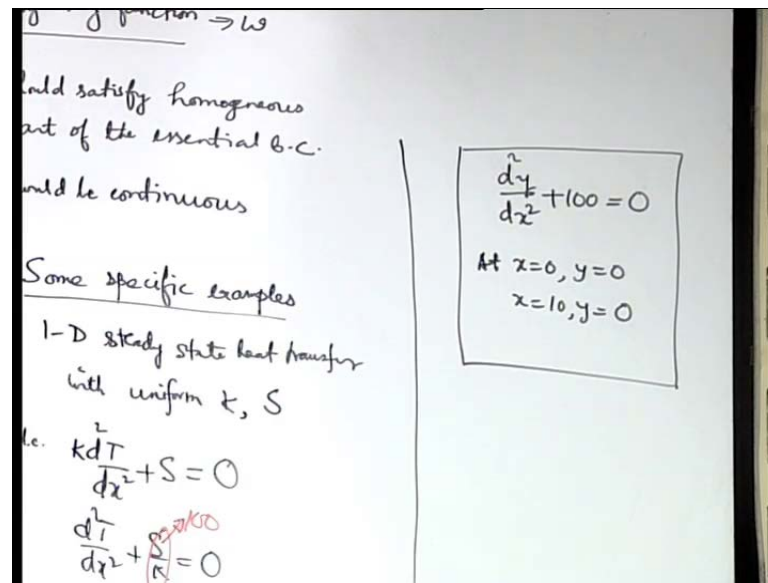 function → w
satisfy homogneous
of the essential B.C.
be continuous
Some specific examples
1-D steady state heat transfer
with uniform k, S
i.e. kd²T/dx² + S = 0
d²T/dx² + S/k = 0
d²y/dx² + 100 = 0
At x=0, y=0
x=10, y=0